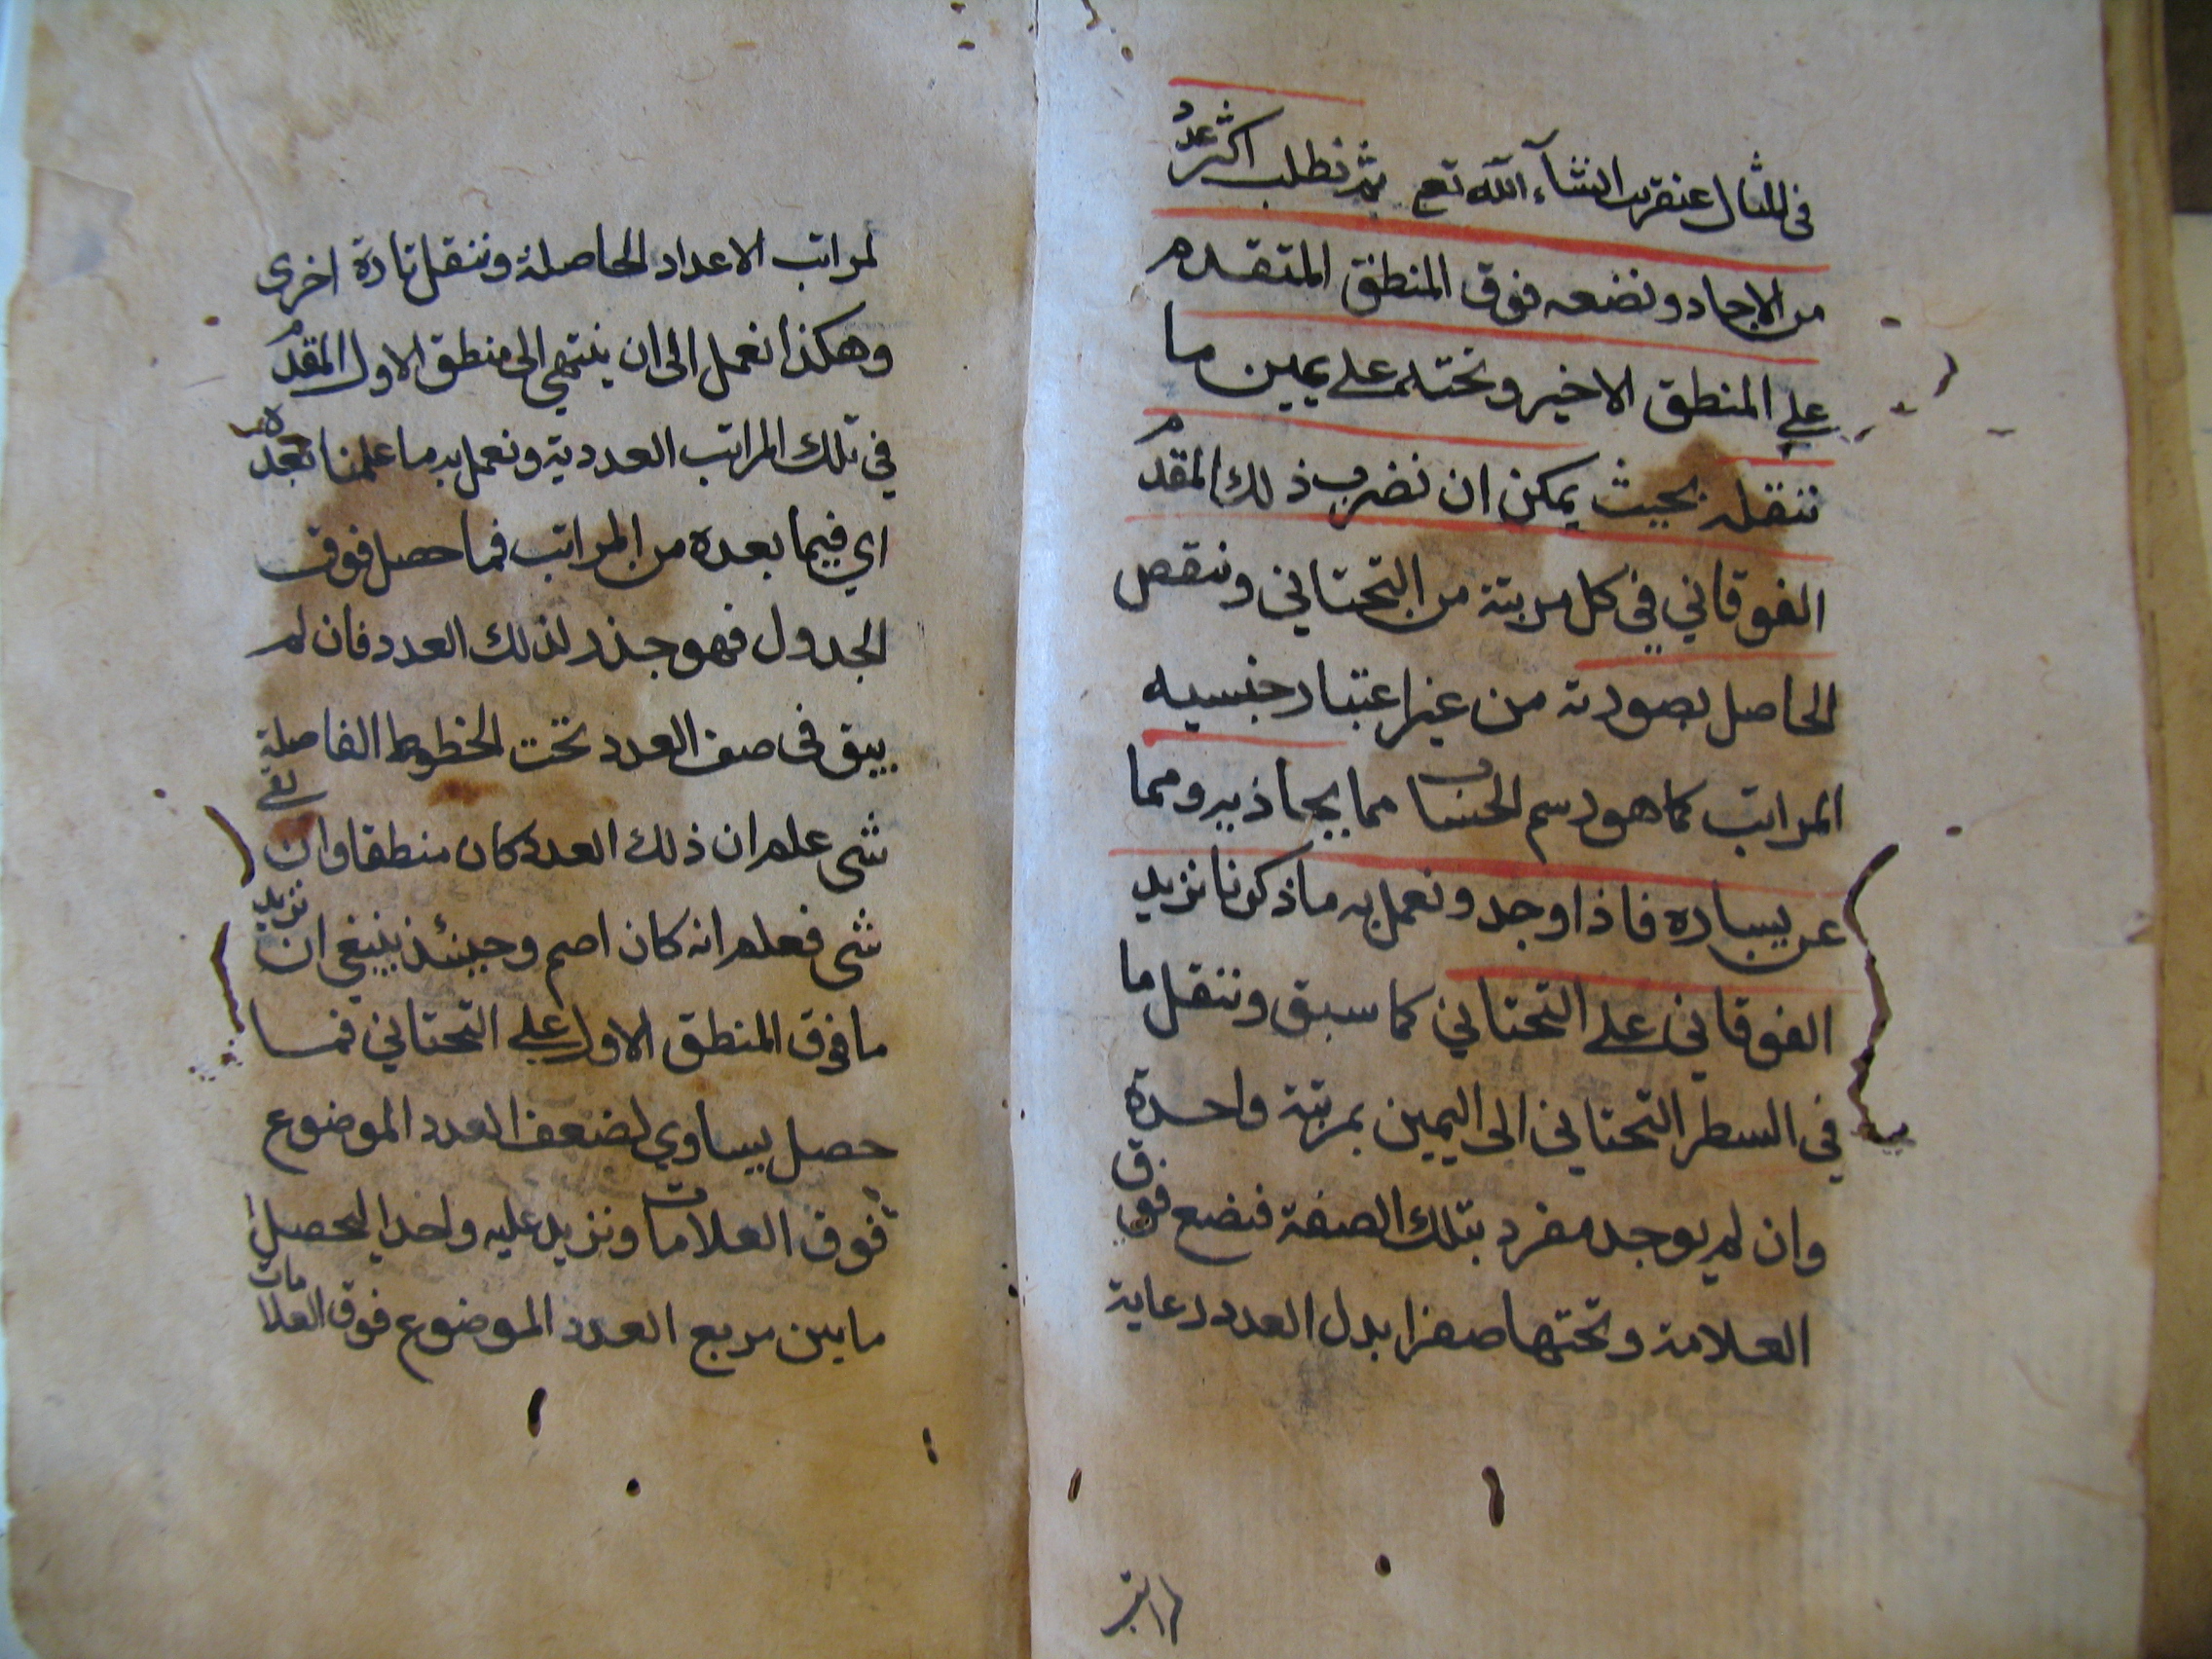 في المثال عنقريب انشآء الله تع ثم نطلب اكثر عدد
من الاحاد ونضعه فوق المنطق المتقدم
على المنطق الاخير وتحته على يمين ما
ننقله بحيث يمكن ان نضرب ذلك المقدم
الفوقاني في كل مرتبة من التحتاني وننقص
الحاصل بصورته من غير اعتبار جنسيه
المراتب كما هو رسم الحساب مما يحاذيه ومما
عن يساره فاذا وجد ونعمل به ما ذكرنا نزيد
الفوقاني على التحتاني كما سبق وننقل ما
في السطر التحتاني الى اليمين بمرتبة واحدة
وان لم يوجد مفرد بتلك الصفة فنضع فوق
العلامة وتحتها صفرا بدل العدد رعاية
لمراتب
لمراتب الاعداد الحاصلة وننقل تارة اخرى
وهكذا نعمل الى ان ينتهي الى منطق الاول المقدم
في تلك المراتب العددية ونعمل به ما علمنا بعده
اي فيما بعده من المراتب فما حصل فوق
الجدول فهو جذر لذلك العدد فان لم
يبق في صف العدد تحت الخطوط الفاصلة
شى علم ان ذلك العدد كان منطقا وان بقى
شى فعلم انه كان اصم وحينئذ ينبغي ان نزيد
ما فوق المنطق الاول على التحتاني فما
حصل يساوي لضعف العدد الموضوع
فوق العلامات ونزيد عليه واحدا ليحصل
ما بين مربع العدد الموضوع فوق العلامات